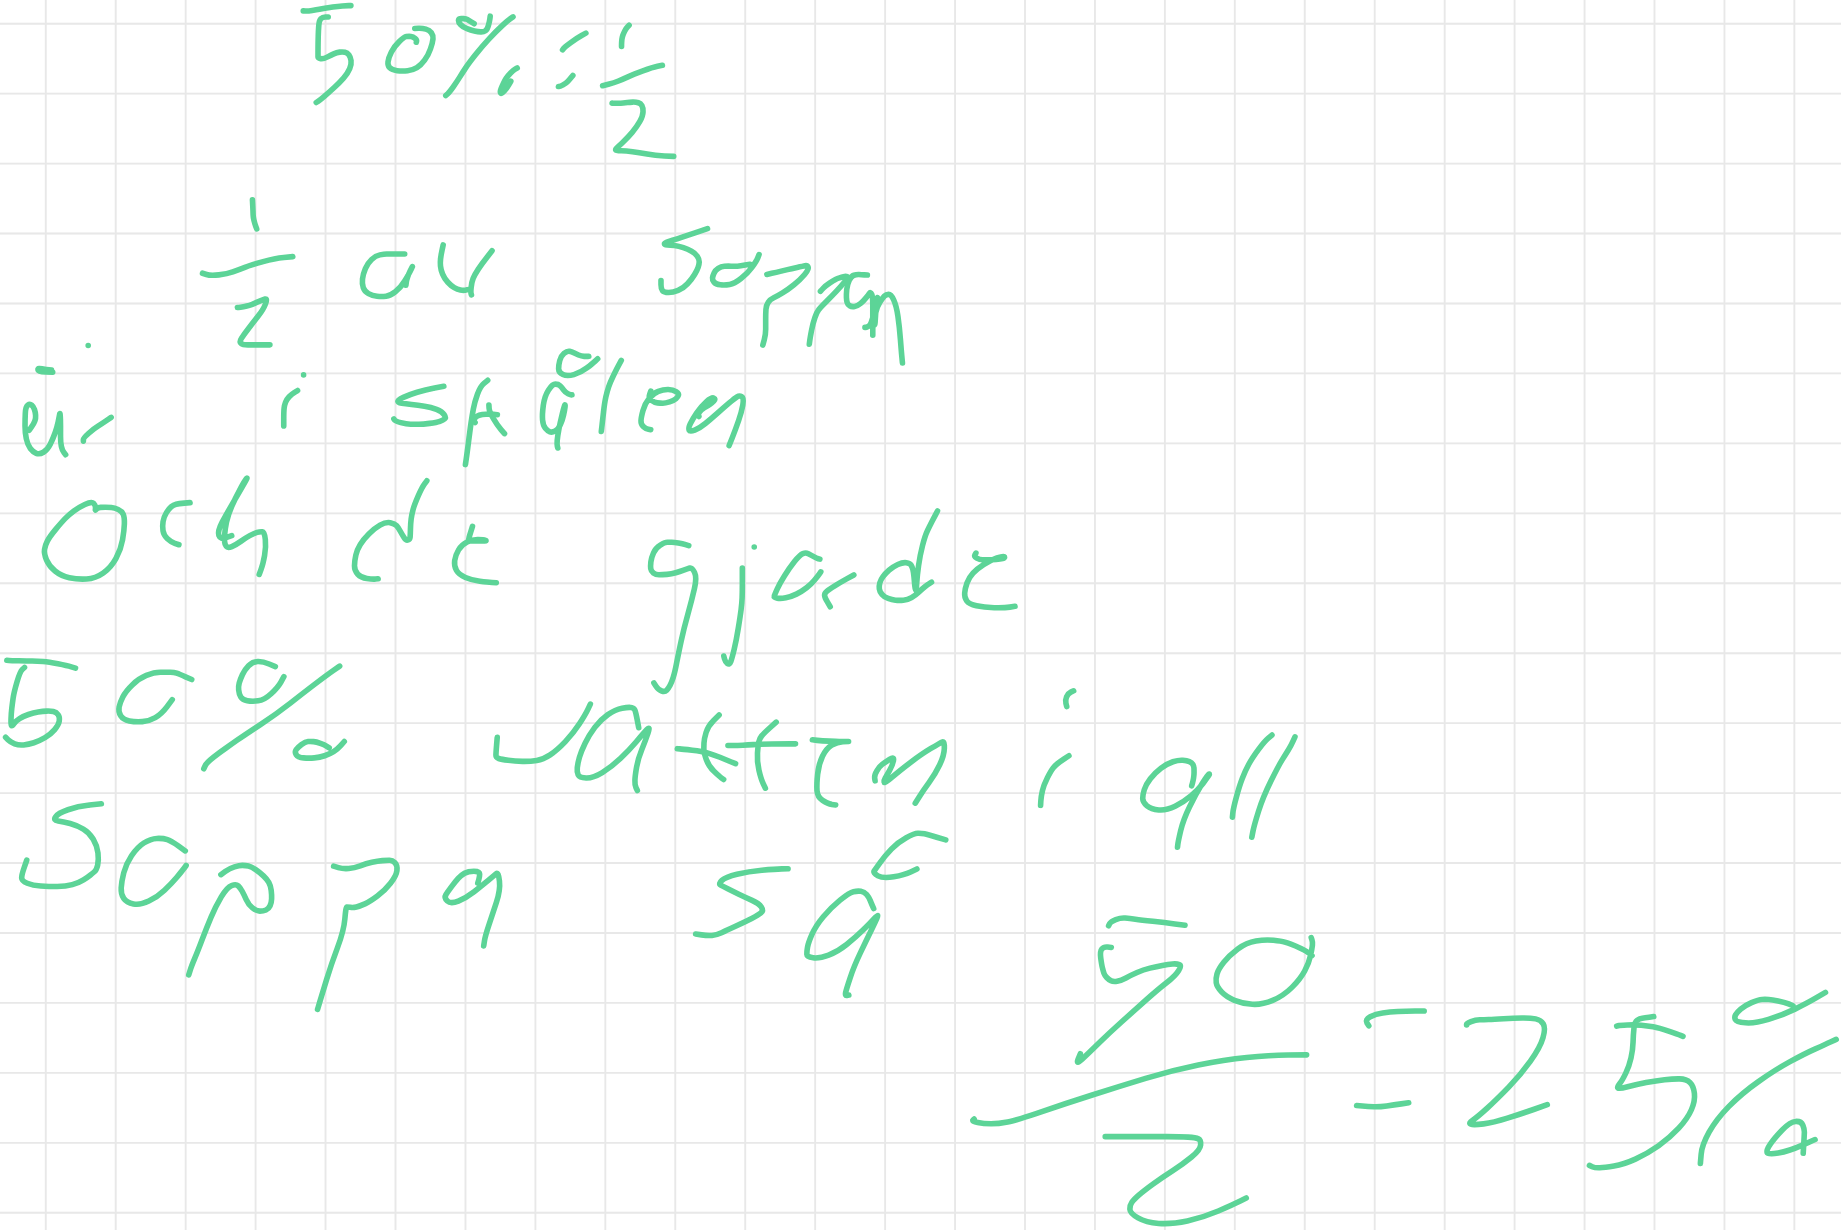 50% = 1/2
1/2 av soppan
är i skålen
och de gjade
50% vatten i all
soppa så 50/2 = 25%